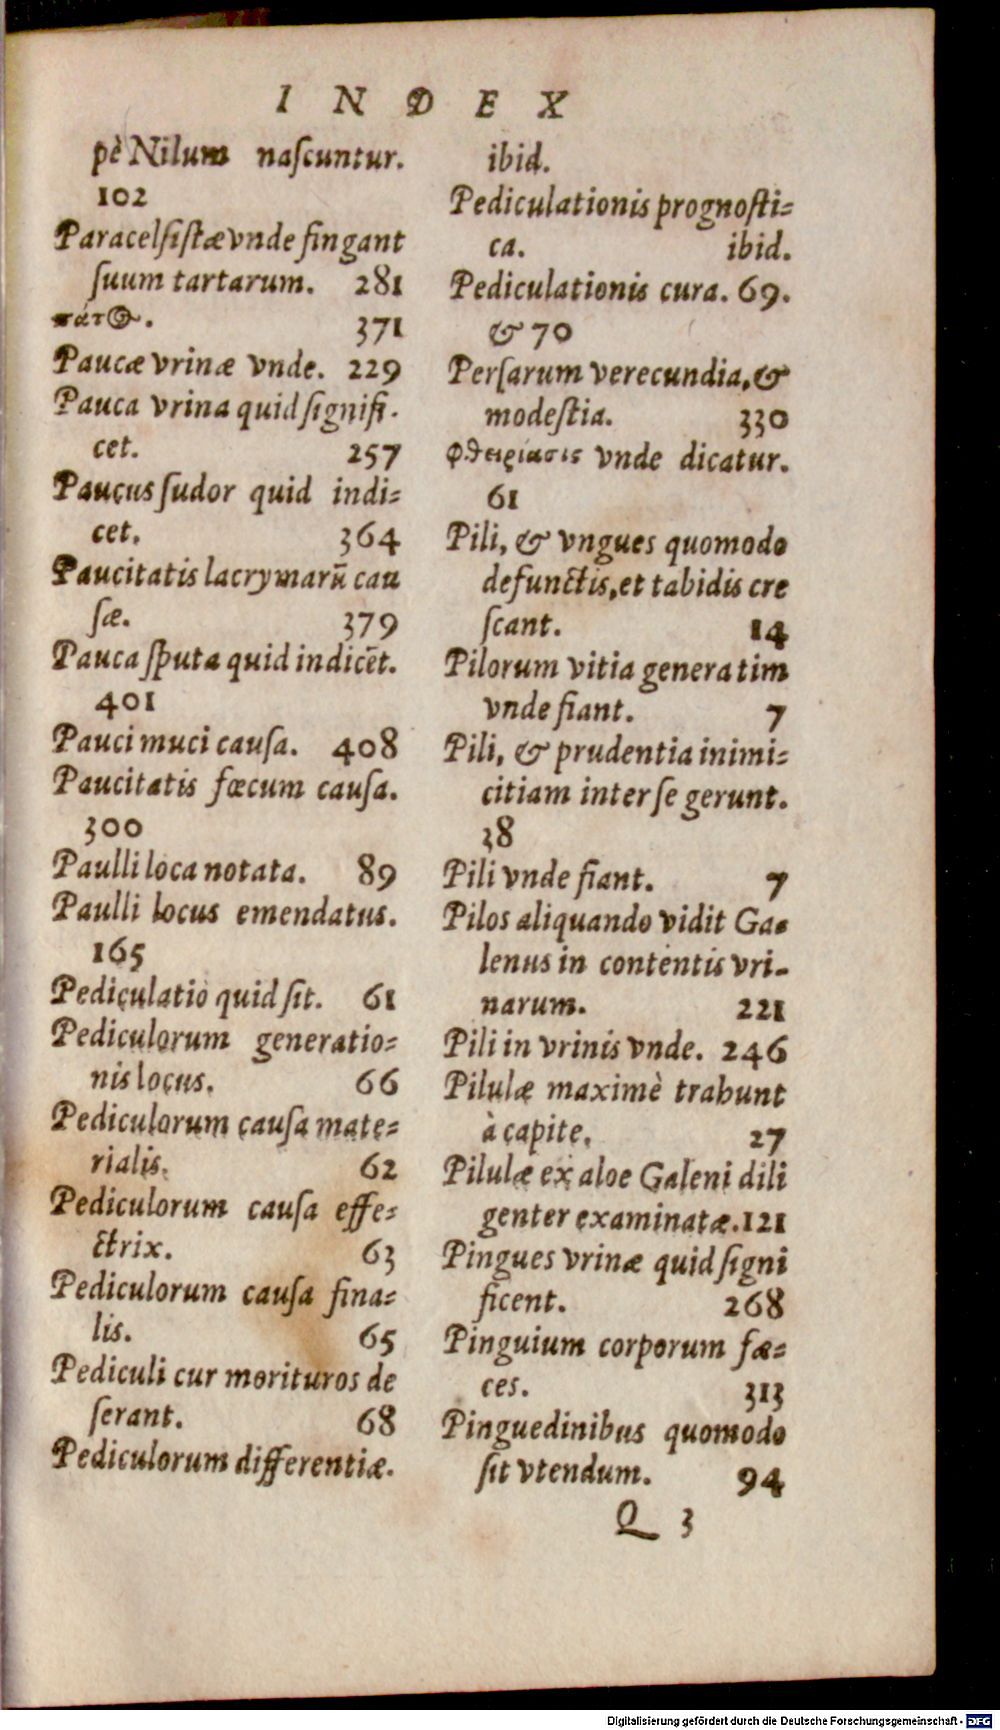 INDEX
pè Nilum naſcuntur.
102
Paracelſiſtæ vnde fingant
ſuum tartarum. 281
πάτος. 371
Paucæ vrinæ vnde. 229
Pauca vrina quid ſignifi-
cet. 257
Paucus ſudor quid indi=
cet. 364
Paucitatis lacrymarũ cau
ſæ. 379
Pauca ſputa quid indicẽt.
401
Pauci muci cauſa. 408
Paucitatis fœcum cauſa.
300
Paulli loca notata. 89
Paulli locus emendatus.
165
Pediculatio quid ſit. 61
Pediculorum generatio=
nis locus. 66
Pediculorum cauſa mate=
rialis. 62
Pediculorum cauſa effe=
ctrix. 63
Pediculorum cauſa fina=
lis. 65
Pediculi cur morituros de
ſerant. 68
Pediculorum differentiæ.
ibid.
Pediculationis prognoſti=
ca. ibid.
Pediculationis cura. 69.
& 70
Perſarum verecundia, &
modeſtia. 330
φθειρίασις vnde dicatur.
61
Pili, & vngues quomodo
defunctis, et tabidis cre
ſcant. 14
Pilorum vitia generatim
vnde fiant. 7
Pili, & prudentia inimi=
citiam inter ſe gerunt.
38
Pili vnde fiant. 7
Pilos aliquando vidit Ga=
lenus in contentis vri-
narum. 221
Pili in vrinis vnde. 246
Pilulæ maximè trahunt
à capite. 27
Pilulæ ex aloe Galeni dili
genter examinatæ. 121
Pingues vrinæ quid ſigni
ficent. 268
Pinguium corporum fæ=
ces. 313
Pinguedinibus quomodo
ſit vtendum. 94
Q 3
Digitalisierung gefördert durch die Deutsche Forschungsgemeinschaft - DFG